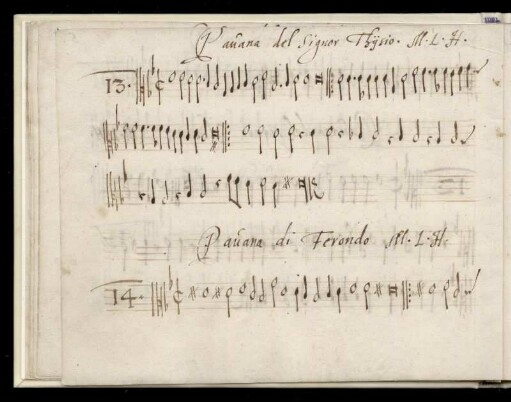 Pauana del Signor Thysio. M. L. H.
13.
Pauana di Ferondo M. L. H.
14.